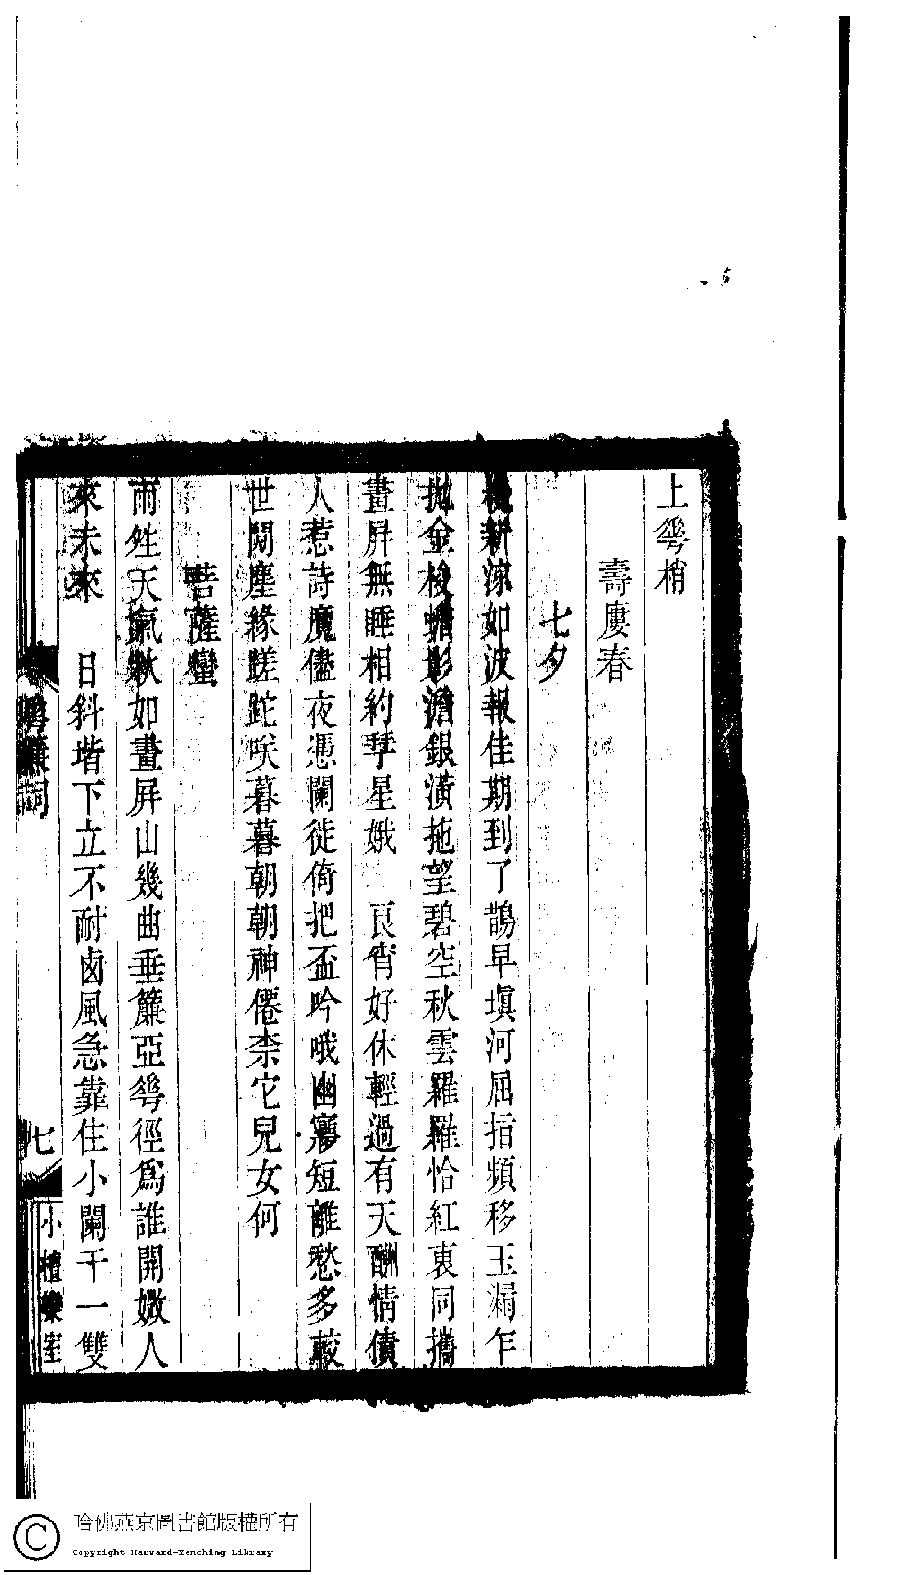 上䔢梢
壽廔春
七夕
新涼如波報佳期到了鵲早塡河屈指頻移玉漏乍
拋金梭蟾影澹銀潢拖望碧空秋雲羅羅恰紅裏同攜
畫屛無睡相約雙星娥　良宵好休輕過有天酬情債
人惹詩魔儘夜憑闌徙倚把盃吟哦幽夢短離愁多較
世閒塵緣蹉跎咲暮暮朝朝神僊柰它兒女何
菩薩蠻
雨甡天氣秋如畫屛山幾曲垂簾亞䔢徑爲誰開嫩人
來未來　日斜堦下立不耐鹵風急靠住小闌干一雙
詞
七
小檀欒室
哈佛燕京圖書館版權所有
Copyright Harvard-Yenching Library